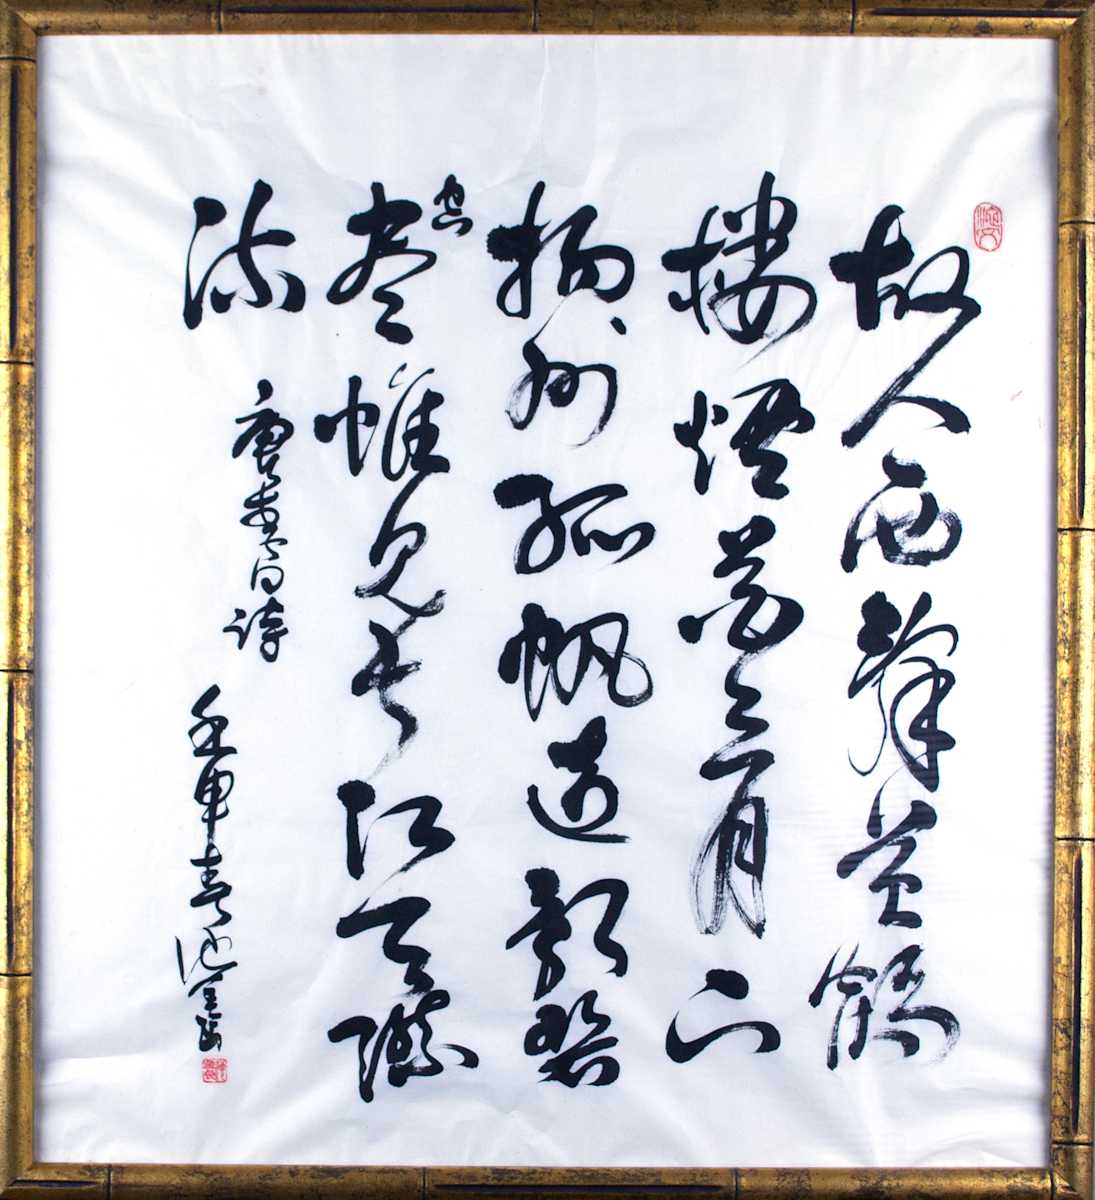 故人西辭黃鶴
樓煙花三月下
揚州孤帆遠影碧
空
盡惟見長江天際
流
唐李白詩
壬申春